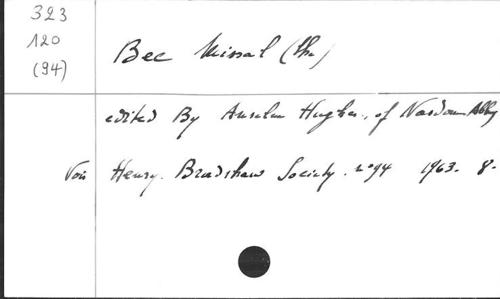 323
120
(94)
Bec Missal (the)
edited By Anselm Hughes, of Nasdom Abbey
Voir Henry. Bradshaw Society. n° 94 1963. 8-